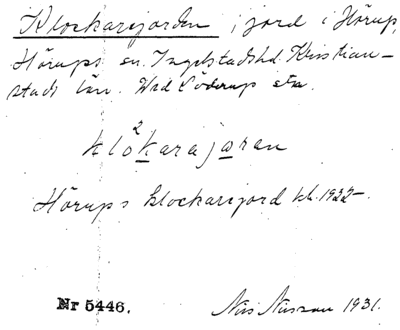 Klockarejorden, jord i Hörup,
Hörups sn. Ingelstads hd. Kristian-
stads län. Ved Löderup stn.
2
klokarajoren
Hörups klockarejord kl. 1922-.
Nr 5446. Nils Nilsson 1931.